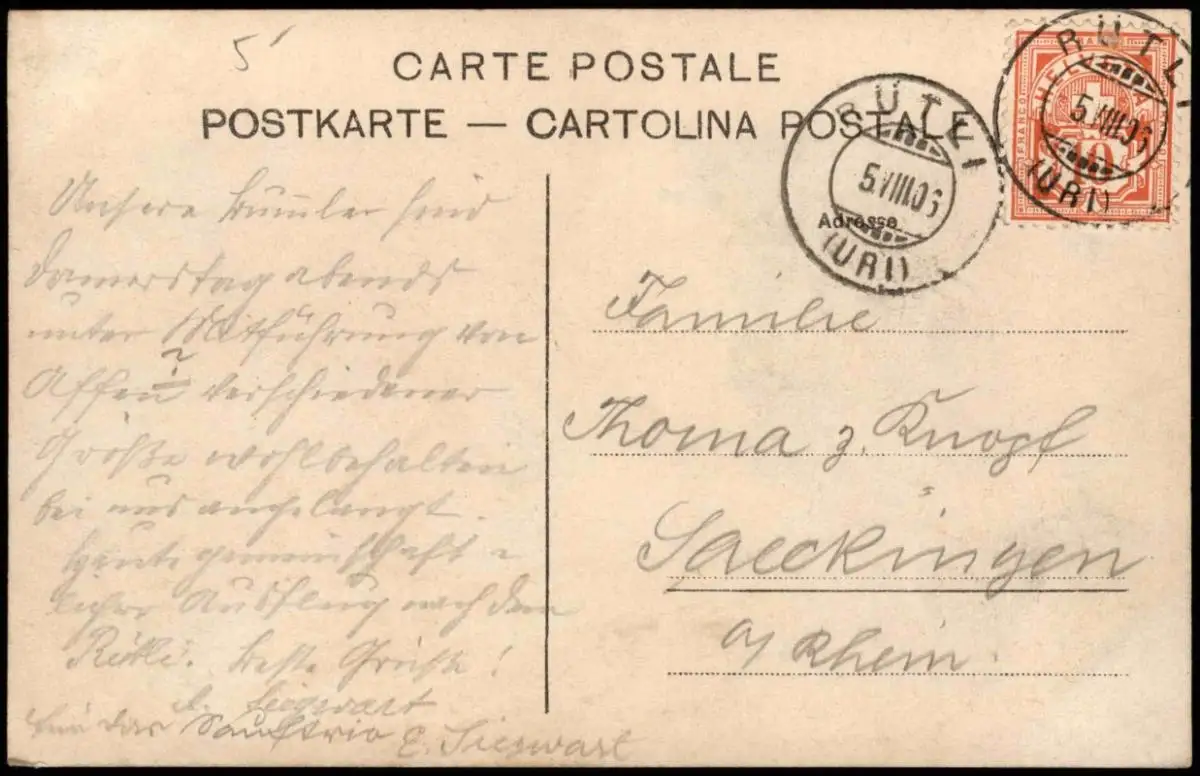 5'
CARTE POSTALE
POSTKARTE — CARTOLINA POSTALE
RÜTLI
5.VIII.06
(URI)
RÜTLI
HELVETIA
5.VIII.06
10
(URI)
Adresse
Unsere Bummler sind
Donnerstag abends
unter Mitführung von
Affen ? verschiedener
Größe wohlbehalten
bei uns angelangt.
Heute gemeinschaft-
licher Ausflug nach dem
Rütli. Beste Grüße!
Siegwart
das E. Siegwart
Familie
Thoma z. Knopf
Saeckingen
a/ Rhein.